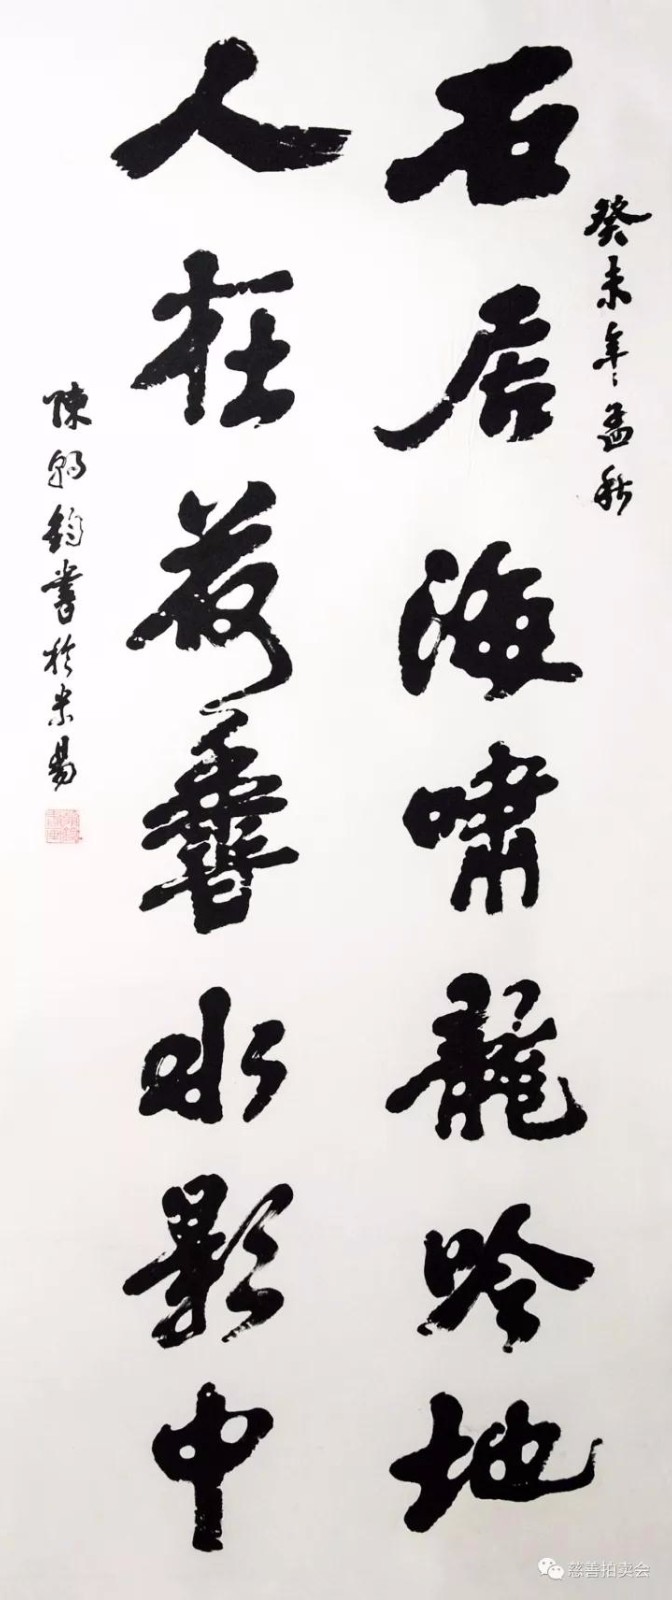 癸未年孟秋
石居海嘯龍吟地
人在荷香水影中
陳鈞書於米易
慈善拍卖会